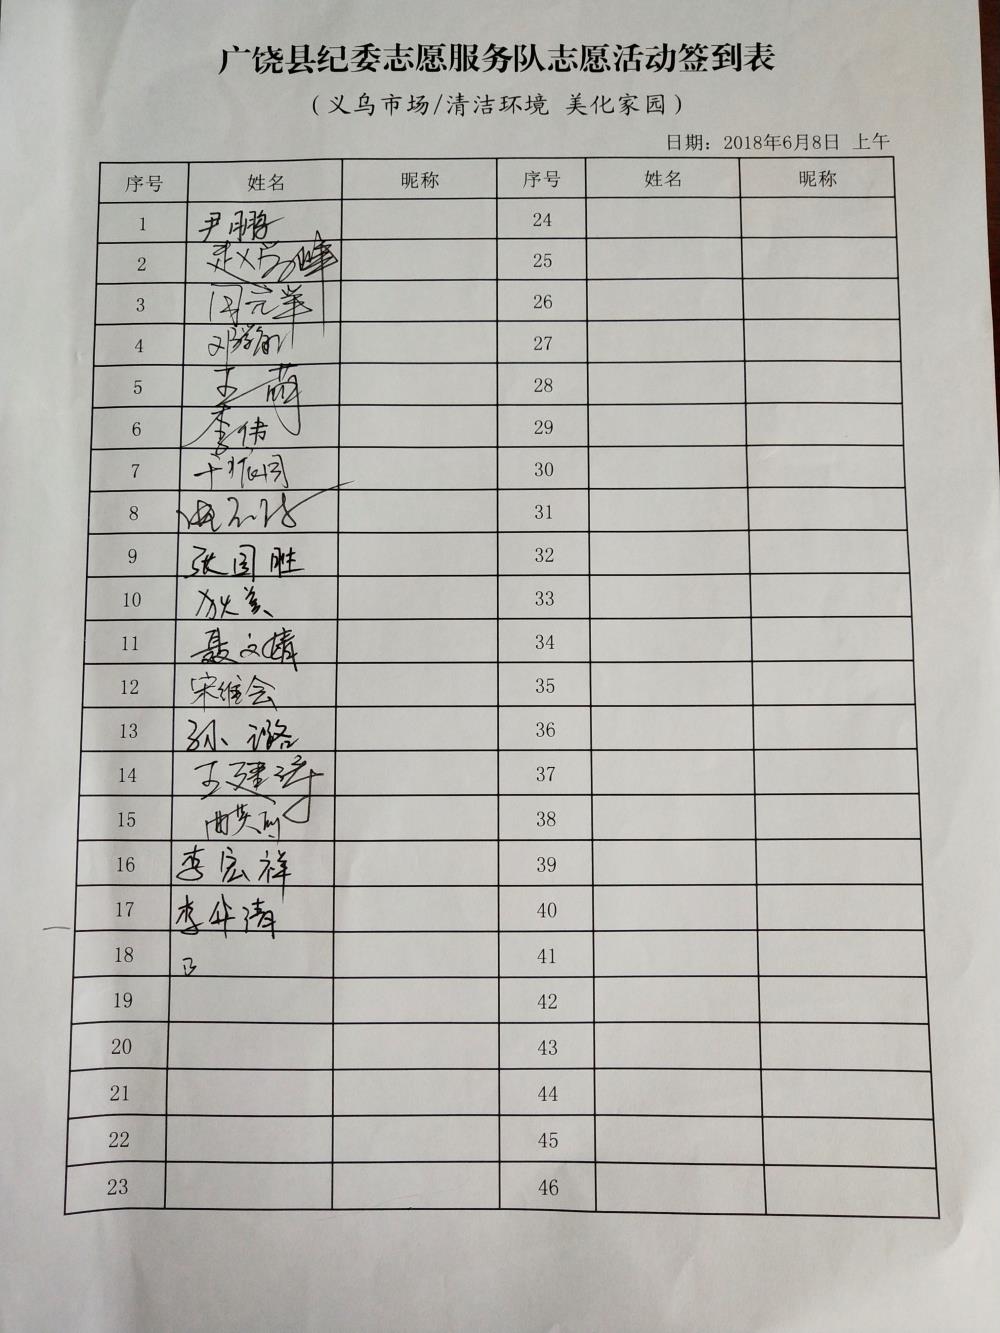 广饶县纪委志愿服务队志愿活动签到表
（义乌市场/清洁环境 美化家园）
日期：2018年6月8日 上午
序号 姓名 昵称 序号 姓名 昵称
1 尹鹏 24
2 25
3 26
4 27
5 王萌 28
6 李伟 29
7 30
8 31
9 张国胜 32
10 狄美 33
11 聂文婧 34
12 宋维会 35
13 孙璐 36
14 37
15 38
16 李宏祥 39
17 李华清 40
18 41
19 42
20 43
21 44
22 45
23 46